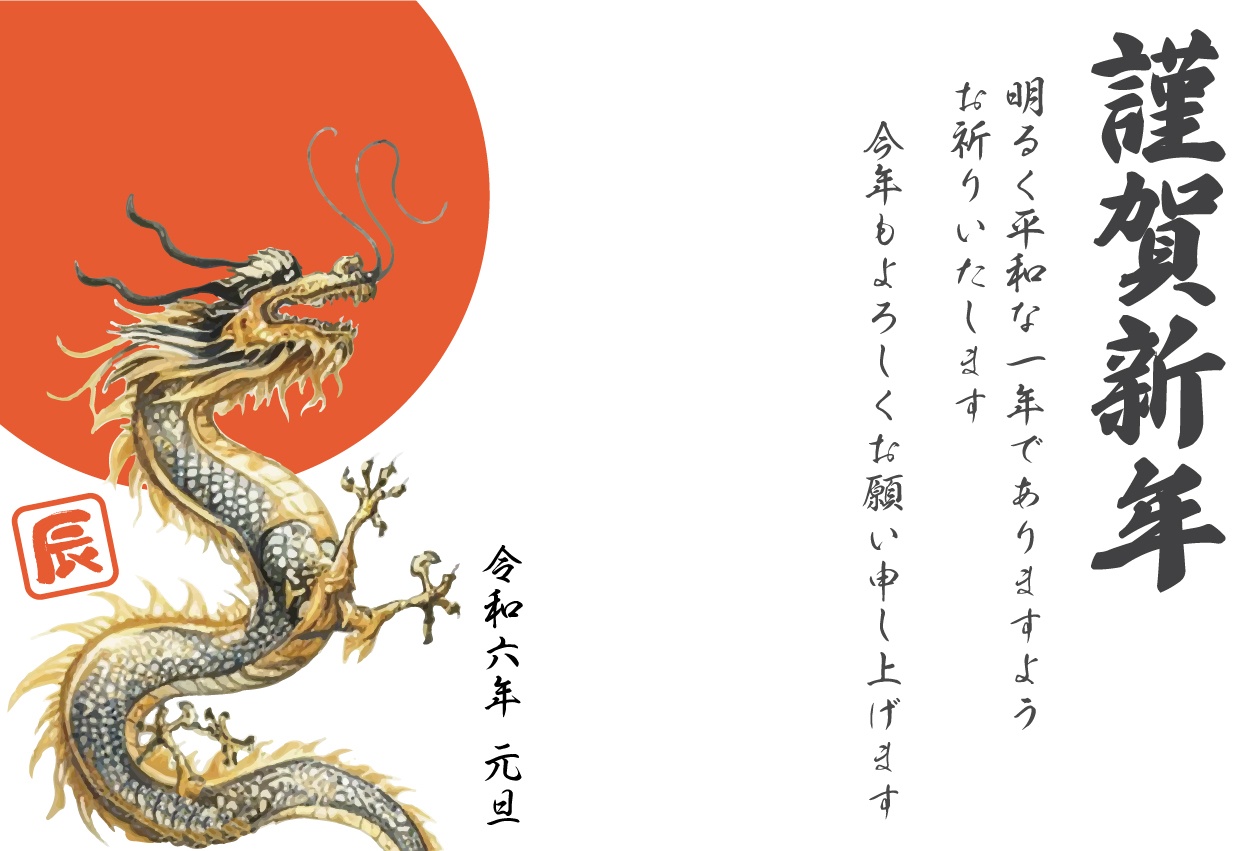 謹賀新年
明るく平和な一年でありますよう
お祈りいたします
今年もよろしくお願い申し上げます
令和六年 元旦
辰